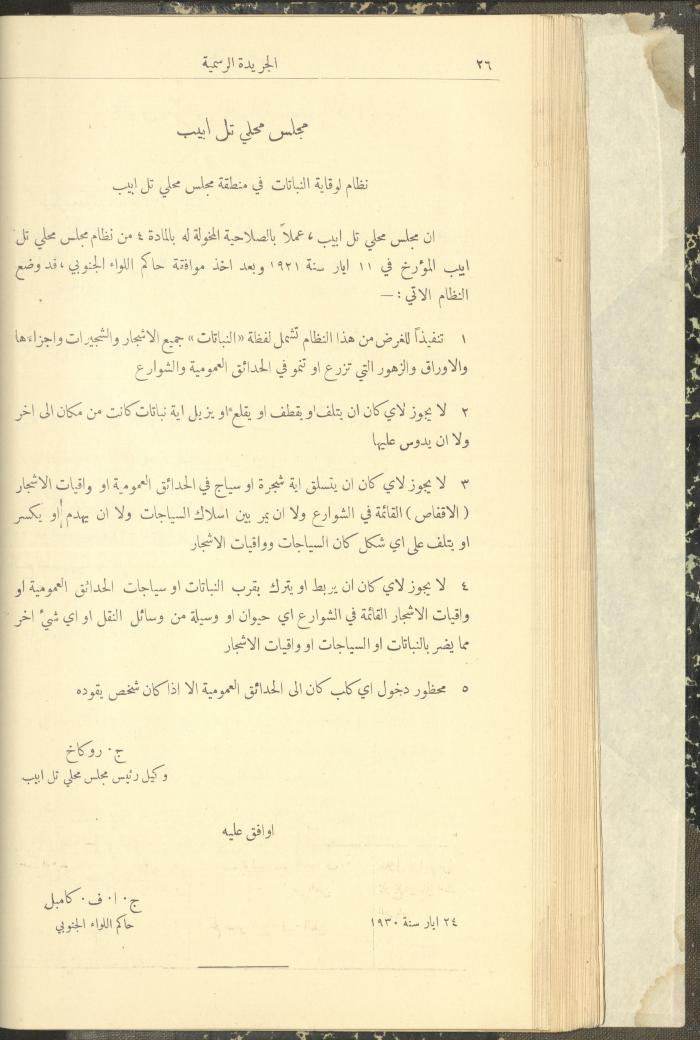 ٢٦ الجريدة الرسمية
مجلس محلي تل ابيب
نظام لوقاية النباتات في منطقة مجلس محلي تل ابيب
ان مجلس محلي تل ابيب ، عملاً بالصلاحية المخولة له بالمادة ٤ من نظام مجلس محلي تل
ابيب المؤرخ في ١١ ايار سنة ١٩٢١ وبعد اخذ موافقة حاكم اللواء الجنوبي ، قد وضع
النظام الاتي : —
١ تنفيذاً للغرض من هذا النظام تشمل لفظة «النباتات» جميع الاشجار والشجيرات واجزاءها
والاوراق والزهور التي تزرع او تنمو في الحدائق العمومية والشوارع
٢ لا يجوز لاي كان ان يتلف او يقطف او يقلع او يزيل اية نباتات كانت من مكان الى اخر
ولا ان يدوس عليها
٣ لا يجوز لاي كان ان يتسلق اية شجرة او سياج في الحدائق العمومية او واقيات الاشجار
( الاقفاص ) القائمة في الشوارع ولا ان يمر بين اسلاك السياجات ولا ان يهدم او يكسر
او يتلف على اي شكل كان السياجات وواقيات الاشجار
٤ لا يجوز لاي كان ان يربط او يترك بقرب النباتات او سياجات الحدائق العمومية او
واقيات الاشجار القائمة في الشوارع اي حيوان او وسيلة من وسائل النقل او اي شيء اخر
مما يضر بالنباتات او السياجات او واقيات الاشجار
٥ محظور دخول اي كلب كان الى الحدائق العمومية الا اذا كان شخص يقوده
ج . روكاخ
وكيل رئيس مجلس محلي تل ابيب
اوافق عليه
ج . ا . ف . كامبل
٢٤ ايار سنة ١٩٣٠ حاكم اللواء الجنوبي